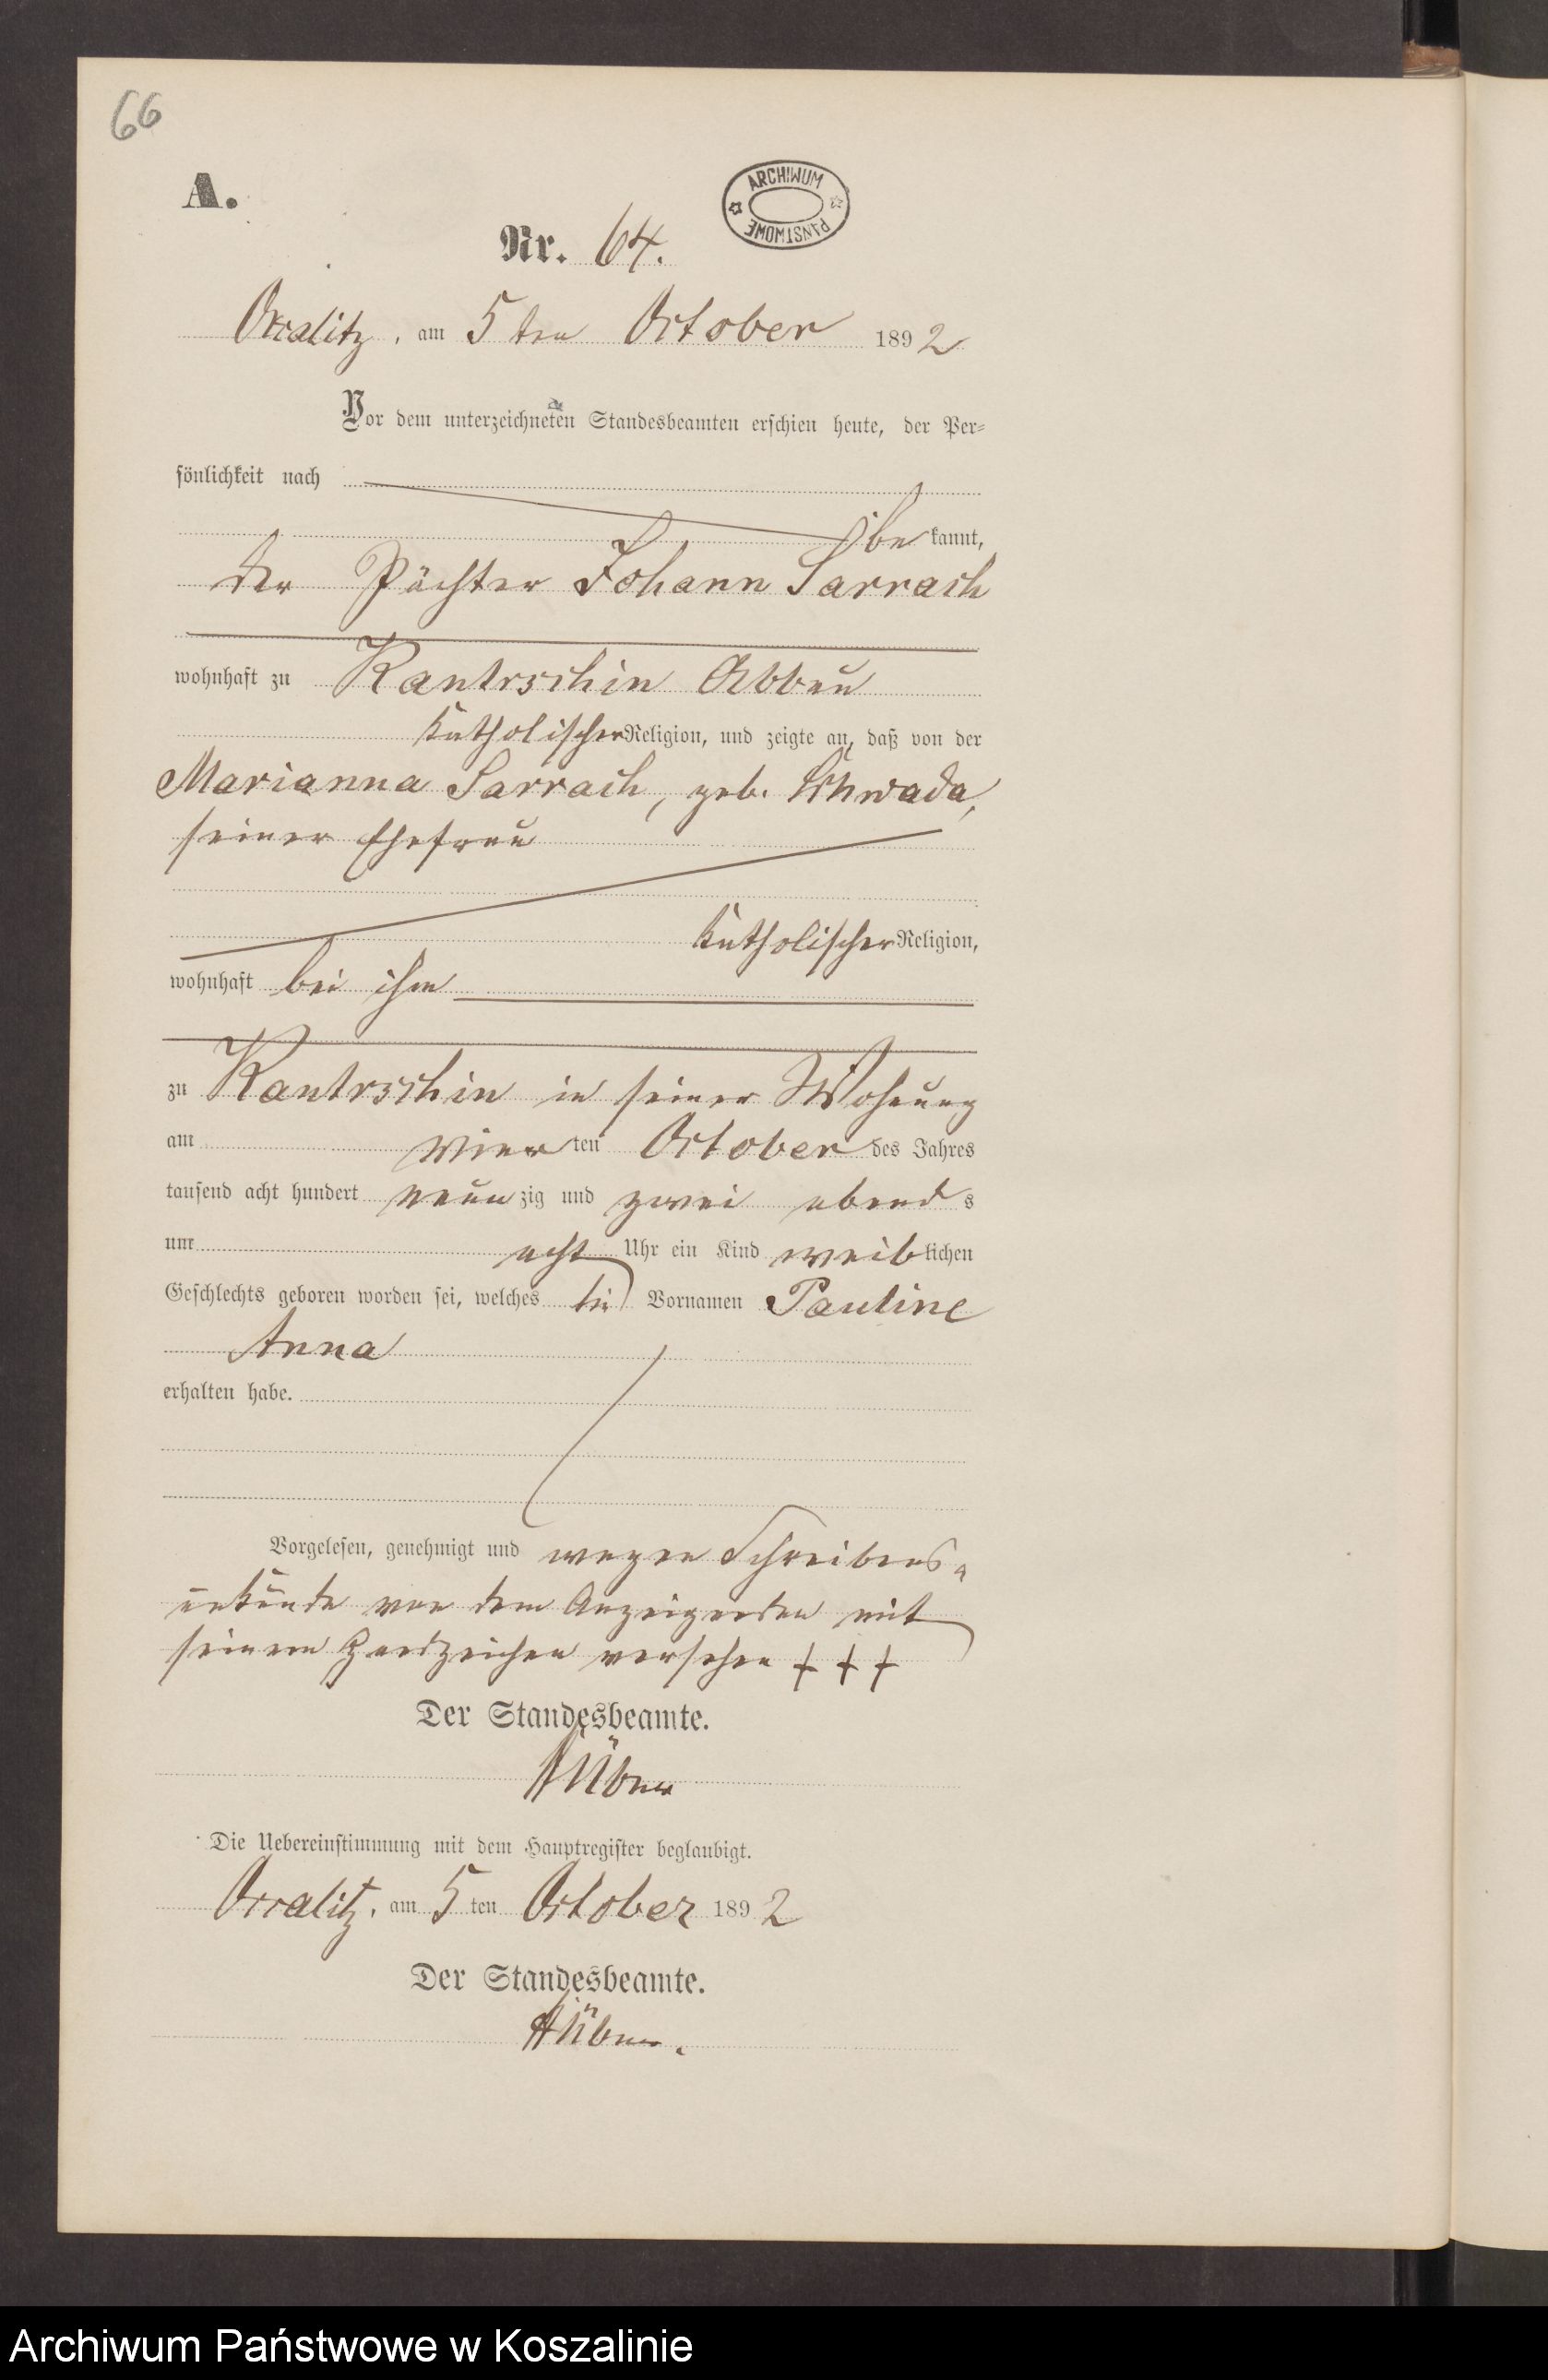 66
A.
ARCHIWUM PAŃSTWOWE
Nr. 64.
Occalitz, am 5 ten October 1892
Vor dem unterzeichneten Standesbeamten erschien heute, der Per=
sönlichkeit nach
be kannt,
der Pächter Johann Sarrach
wohnhaft zu Kantrschin Abbau
katholischer Religion, und zeigte an, daß von der
Marianna Sarrach, geb. Schwada,
seiner Ehefrau
katholischer Religion,
wohnhaft bei ihm
zu Kantrschin in seiner Wohnung
am vier ten October des Jahres
tausend acht hundert neun zig und zwei abend s
um acht Uhr ein Kind weib lichen
Geschlechts geboren worden sei, welches die Vornamen Pauline
Anna
erhalten habe.
Vorgelesen, genehmigt und wegen Schreibens-
unkunde von dem Anzeigenden mit
seinem Handzeichen versehen + + +
Der Standesbeamte.
Hübner
Die Uebereinstimmung mit dem Hauptregister beglaubigt.
Occalitz, am 5 ten October 1892
Der Standesbeamte.
Hübner.
Archiwum Państwowe w Koszalinie